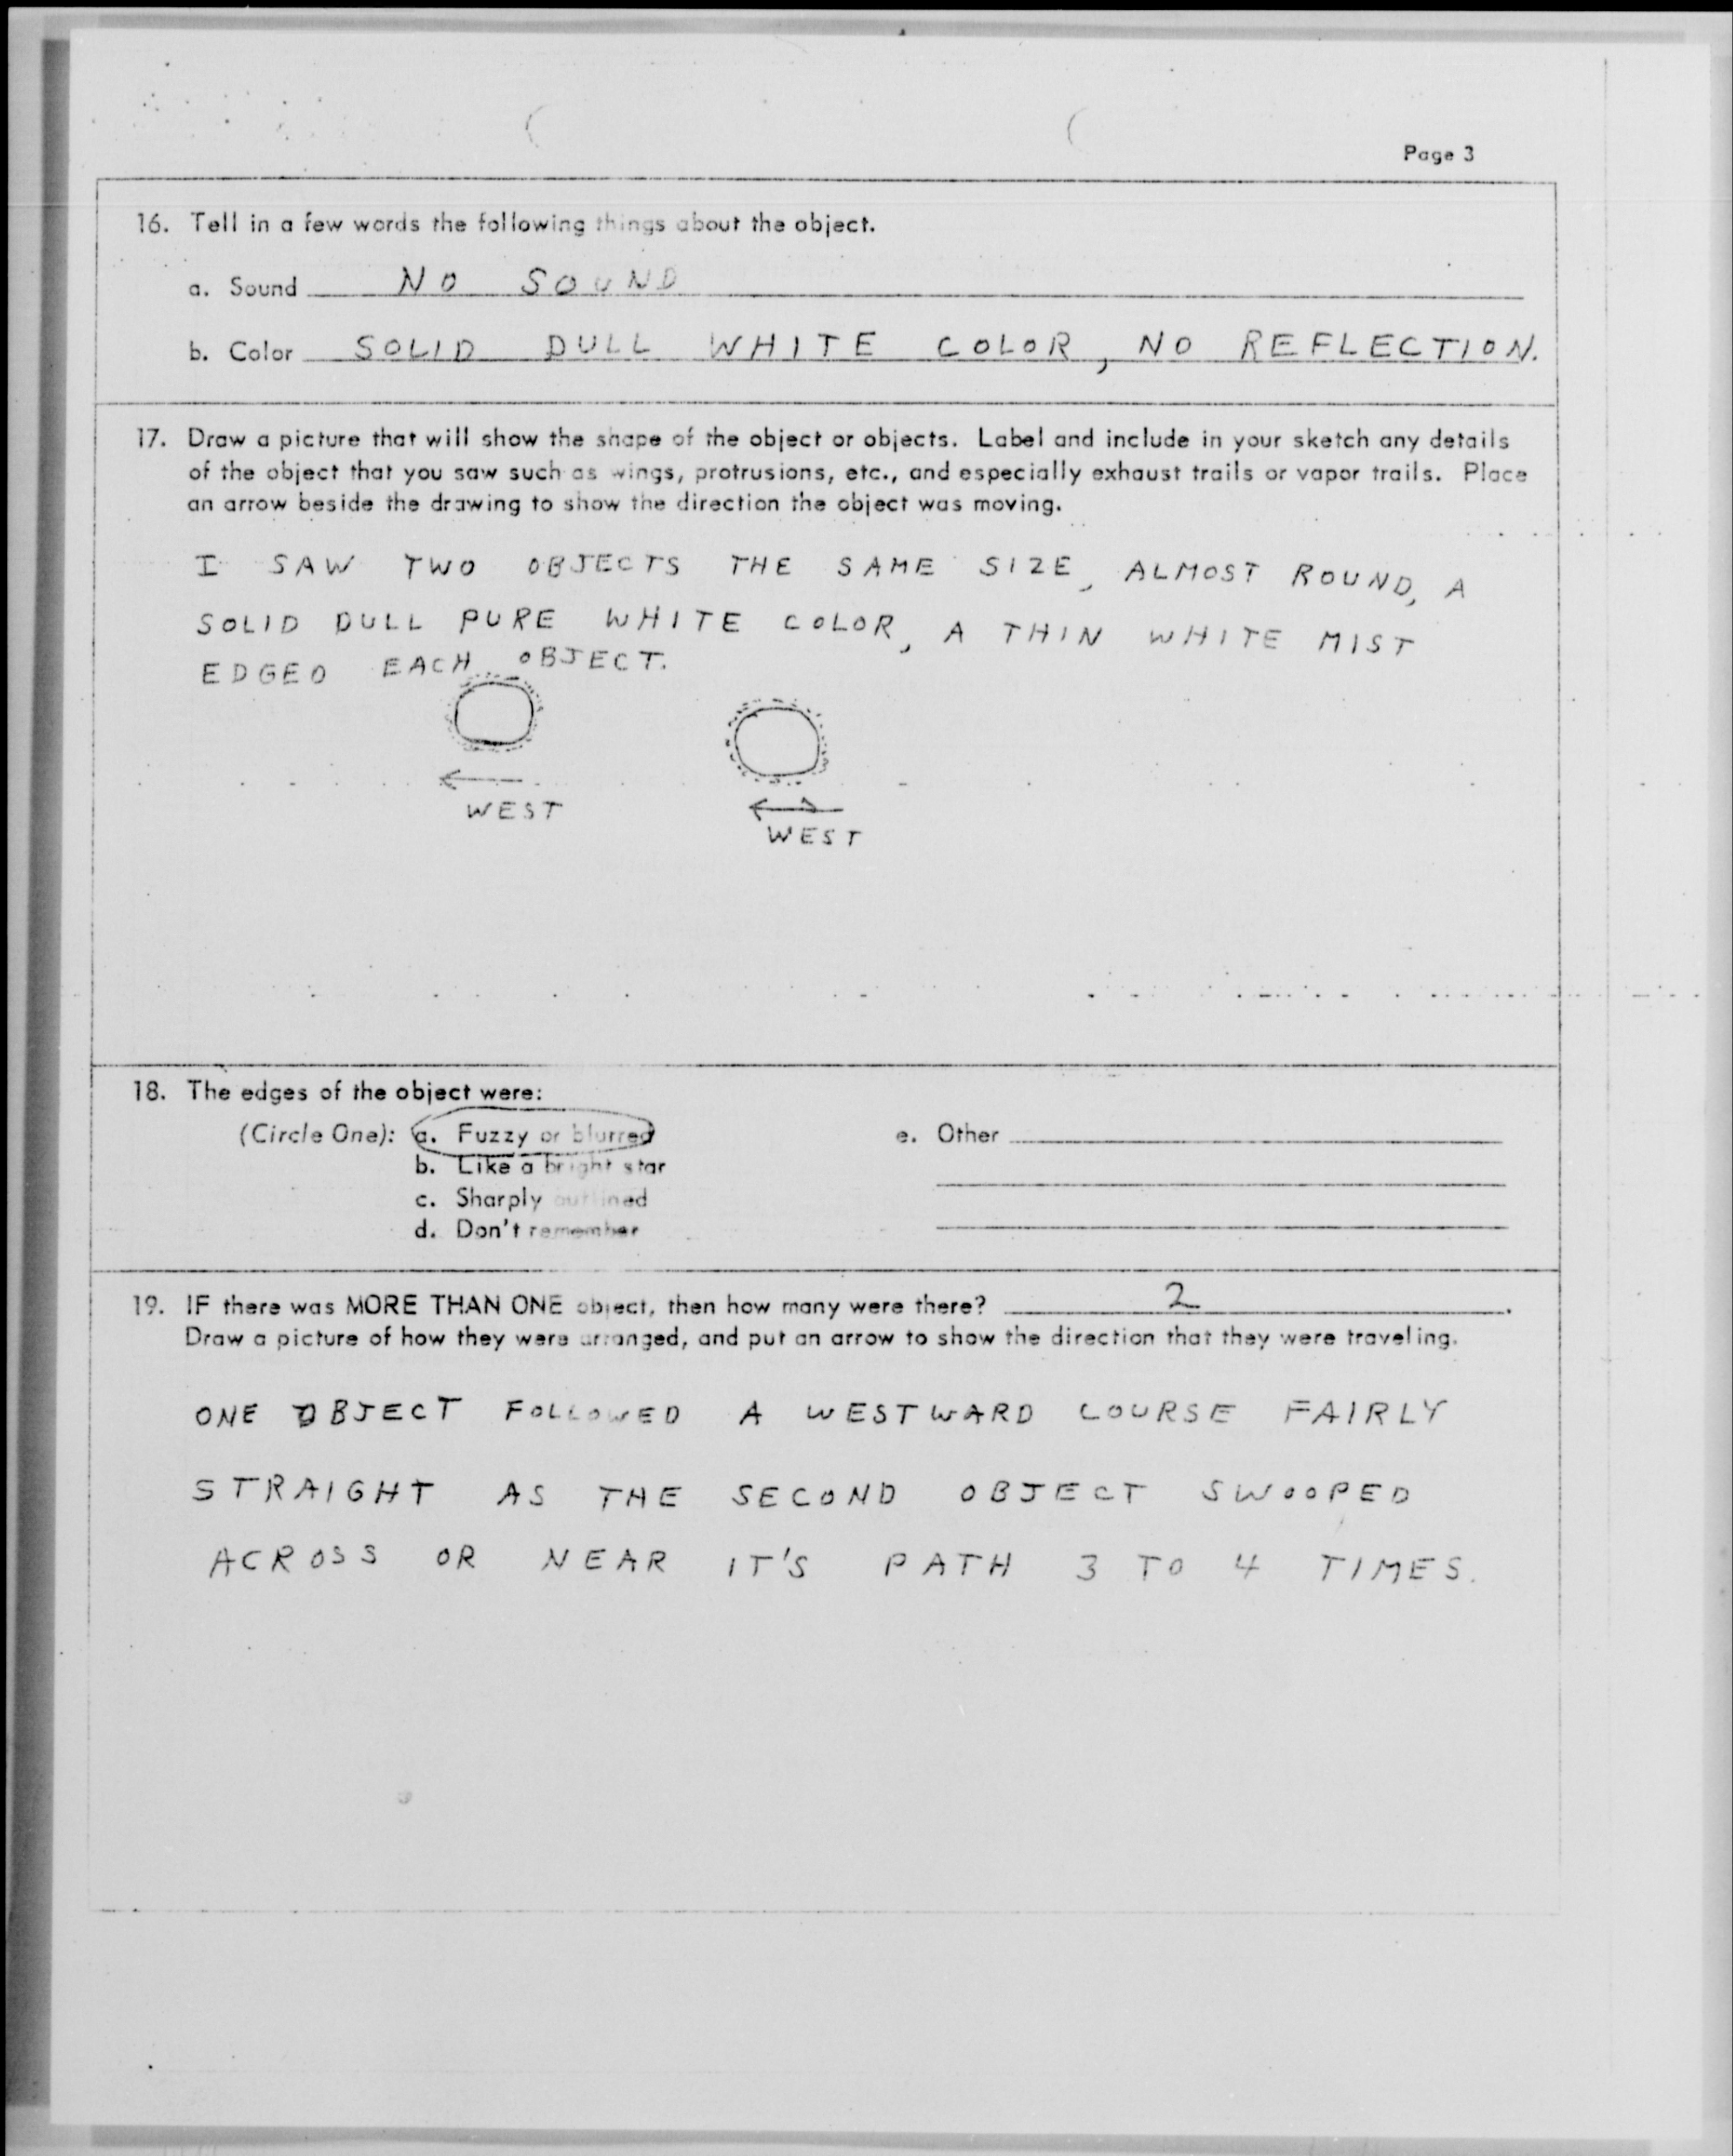 Page 3
16. Tell in a few words the following things about the object.
a. Sound NO SOUND
b. Color SOLID DULL WHITE COLOR, NO REFLECTION.
17. Draw a picture that will show the shape of the object or objects. Label and include in your sketch any details
of the object that you saw such as wings, protrusions, etc., and especially exhaust trails or vapor trails. Place
an arrow beside the drawing to show the direction the object was moving.
I SAW TWO OBJECTS THE SAME SIZE, ALMOST ROUND, A
SOLID DULL PURE WHITE COLOR, A THIN WHITE MIST
EDGED EACH OBJECT.
WEST
WEST
18. The edges of the object were:
(Circle One): a. Fuzzy or blurred e. Other
b. Like a bright star
c. Sharply outlined
d. Don't remember
19. IF there was MORE THAN ONE object, then how many were there? 2.
Draw a picture of how they were arranged, and put an arrow to show the direction that they were traveling.
ONE OBJECT FOLLOWED A WESTWARD COURSE FAIRLY
STRAIGHT AS THE SECOND OBJECT SWOOPED
ACROSS OR NEAR IT'S PATH 3 TO 4 TIMES.